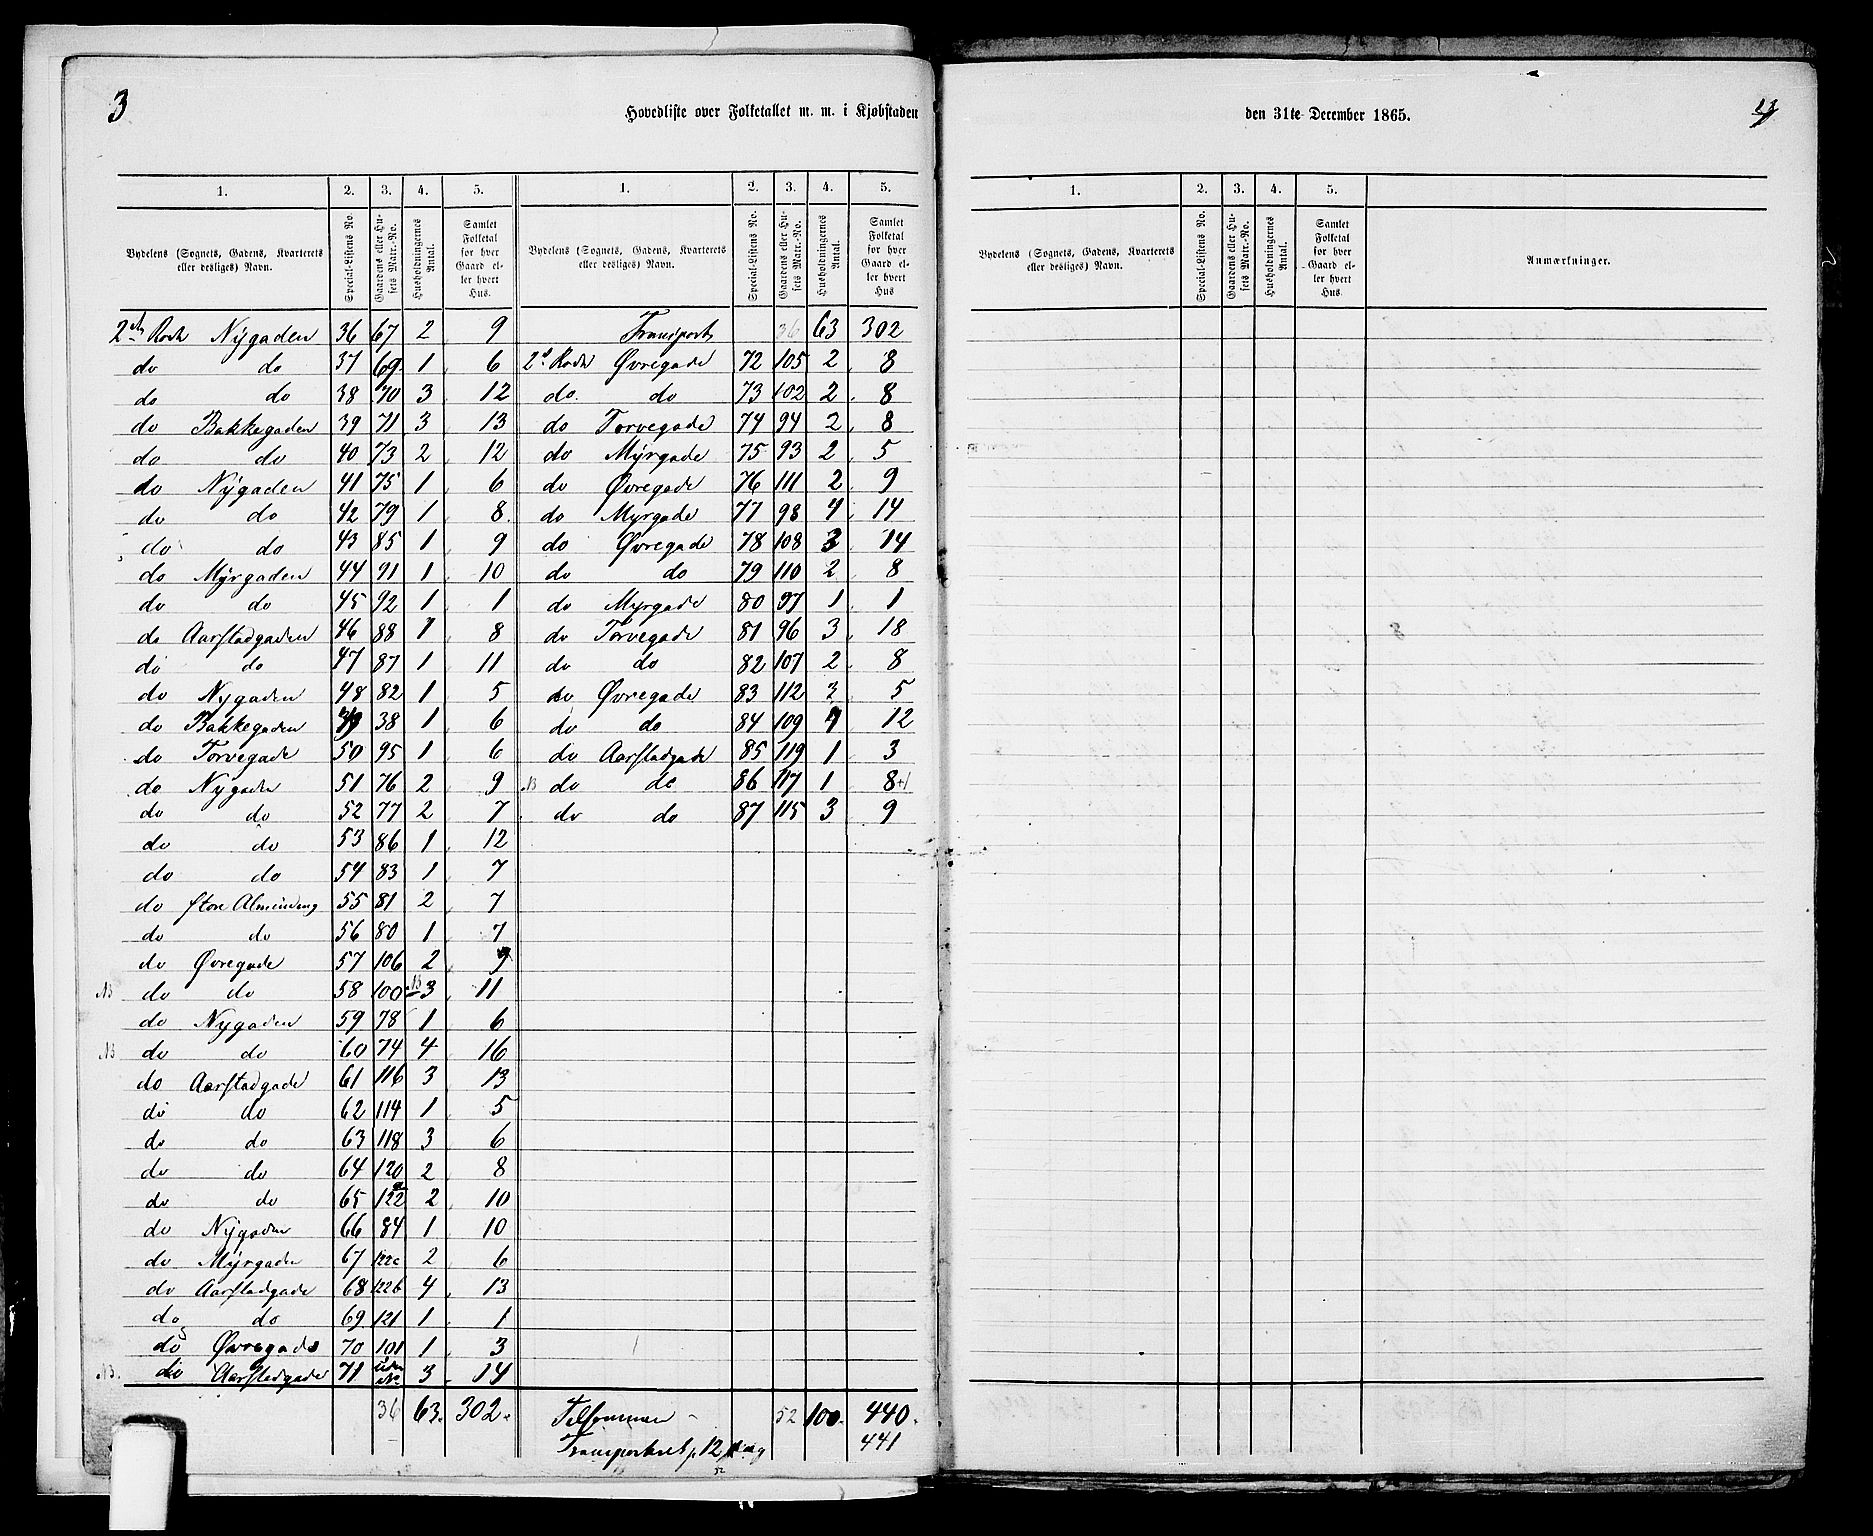 3
Hovedliste over Folketallet m. m. i Kjøbstaden
den 31te December 1865.
1. 2. 3. 4. 5. 1. 2. 3. 4. 5.
Bydelens (Sognets, Gadens, Kvarterets eller desliges) Navn. Special-Listens No. Gaardens eller Husets Matr.-No. Husholdningernes Antal. Samlet Folketal for hver Gaard eller hvert Hus. Bydelens (Sognets, Gadens, Kvarterets eller desliges) Navn. Special-Listens No. Gaardens eller Husets Matr.-No. Husholdningernes Antal. Samlet Folketal for hver Gaard eller hvert Hus
2den Rode Nÿgaden 36 67 2 9 Transport 36 63 302
do do 37 69 1 6 2d Rode Øvregade 72 105 2 8
do do 38 70 3 12 do do 73 102 2 8
do Bakkegaden 39 71 3 13 do Torvegade 74 94 2 8
do do 40 73 2 12 do Mÿrgade 75 93 2 5
do Nÿgaden 41 75 1 6 do Øvregade 76 111 2 9
do do 42 79 1 8 do Myrgade 77 98 4 14
do do 43 85 1 9 do Øvregade 78 108 3 14
do Mÿrgaden 44 91 1 10 do do 79 110 2 8
do do 45 92 1 1 do Myrgade 80 97 1 1
do Aarstadgaden 46 88 1 8 do Torvegade 81 96 3 18
do do 47 87 1 11 do do 82 107 2 8
do Nygaden 48 82 1 5 do Øvregade 83 112 2 5
do Bakkegaden 49 38 1 6 do do 84 109 4 12
do Torvegade 50 95 1 6 do Aarstadgade 85 119 1 3
do Nygaden 51 76 2 9 NB do do 86 117 1 8+1
do do 52 77 2 7 do do 87 115 3 9
do do 53 86 1 12
do do 54 83 1 7
do store Almenning 55 81 2 7
do do 56 80 1 7
do Øvregade 57 106 2 9
NB do do 58 100 NB 3 11
do Nygaden 59 78 1 6
NB do do 60 74 4 16
do Aarstadgade 61 116 3 13
do do 62 114 1 5
do do 63 118 3 6
do do 64 120 2 8
do do 65 122a 2 10
do Nÿgaden 66 84 1 10
do Mÿrgaden 67 122c 2 6
do Aarstadgade 68 122b 4 13
do do 69 121 1 1
do Øvregade 70 101 1 3
NB. do Aarstadgade 71 uden No 3 14
36 63. 302. Tilsammen 52 100. 440.
Transporteret p. 12 441
52
1. 2. 3. 4. 5.
Bydelens (Sognets, Gadens, Kvarterets eller desliges) Navn. Special-Listens No. Gaardens eller Husets Matr.-No. Husholdningernes Antal. Samlet Folketal for hver Gaard eller hvert Hus. Anmærkninger.